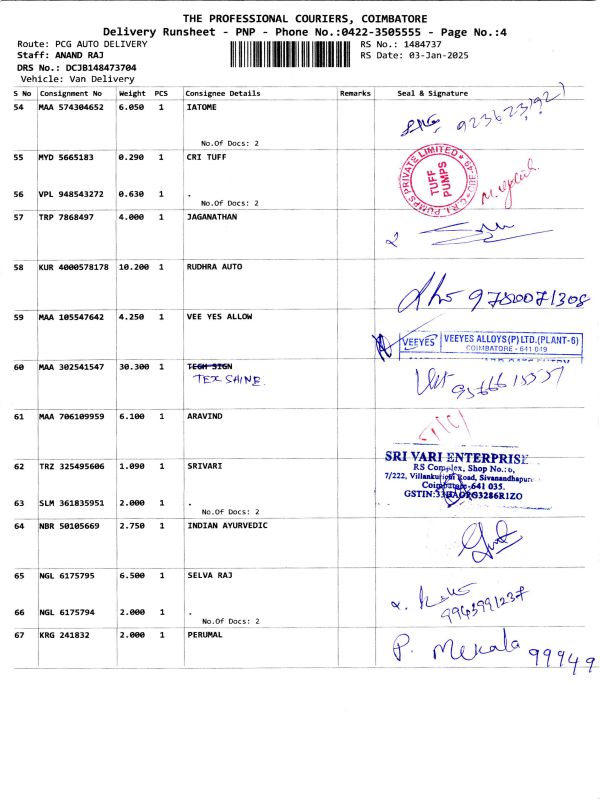 THE PROFESSIONAL COURIERS, COIMBATORE
Delivery Runsheet - PNP - Phone No.:0422-3505555 - Page No.:4
Route: PCG AUTO DELIVERY RS No.: 1484737
Staff: ANAND RAJ RS Date: 03-Jan-2025
DRS No.: DCJB148473704
Vehicle: Van Delivery
S No Consignment No Weight PCS Consignee Details Remarks Seal & Signature
54 MAA 574304652 6.050 1 IATOME
No.Of Docs: 2
55 MYD 5665183 0.290 1 CRI TUFF
C.R.I. PUMPS PRIVATE LIMITED
TUFF
PUMPS
56 VPL 948543272 0.630 1 .
No.Of Docs: 2
57 TRP 7868497 4.000 1 JAGANATHAN
58 KUR 4000578178 10.200 1 RUDHRA AUTO
59 MAA 105547642 4.250 1 VEE YES ALLOW
VEEYES VEEYES ALLOYS(P) LTD.(PLANT-6)
COIMBATORE - 641 049
60 MAA 302541547 30.300 1 TECH SIGN
TEX SHINE.
61 MAA 706109959 6.100 1 ARAVIND
62 TRZ 325495606 1.090 1 SRIVARI
SRI VARI ENTERPRISE
RS Complex, Shop No.:6,
7/222, Villankurichi Road, Sivanandhapuram
Coimbatore-641 035.
63 SLM 361835951 2.000 1 .
No.Of Docs: 2
64 NBR 50105669 2.750 1 INDIAN AYURVEDIC
65 NGL 6175795 6.500 1 SELVA RAJ
9943991237
66 NGL 6175794 2.000 1 .
No.Of Docs: 2
67 KRG 241832 2.000 1 PERUMAL
P. Mekala 99949